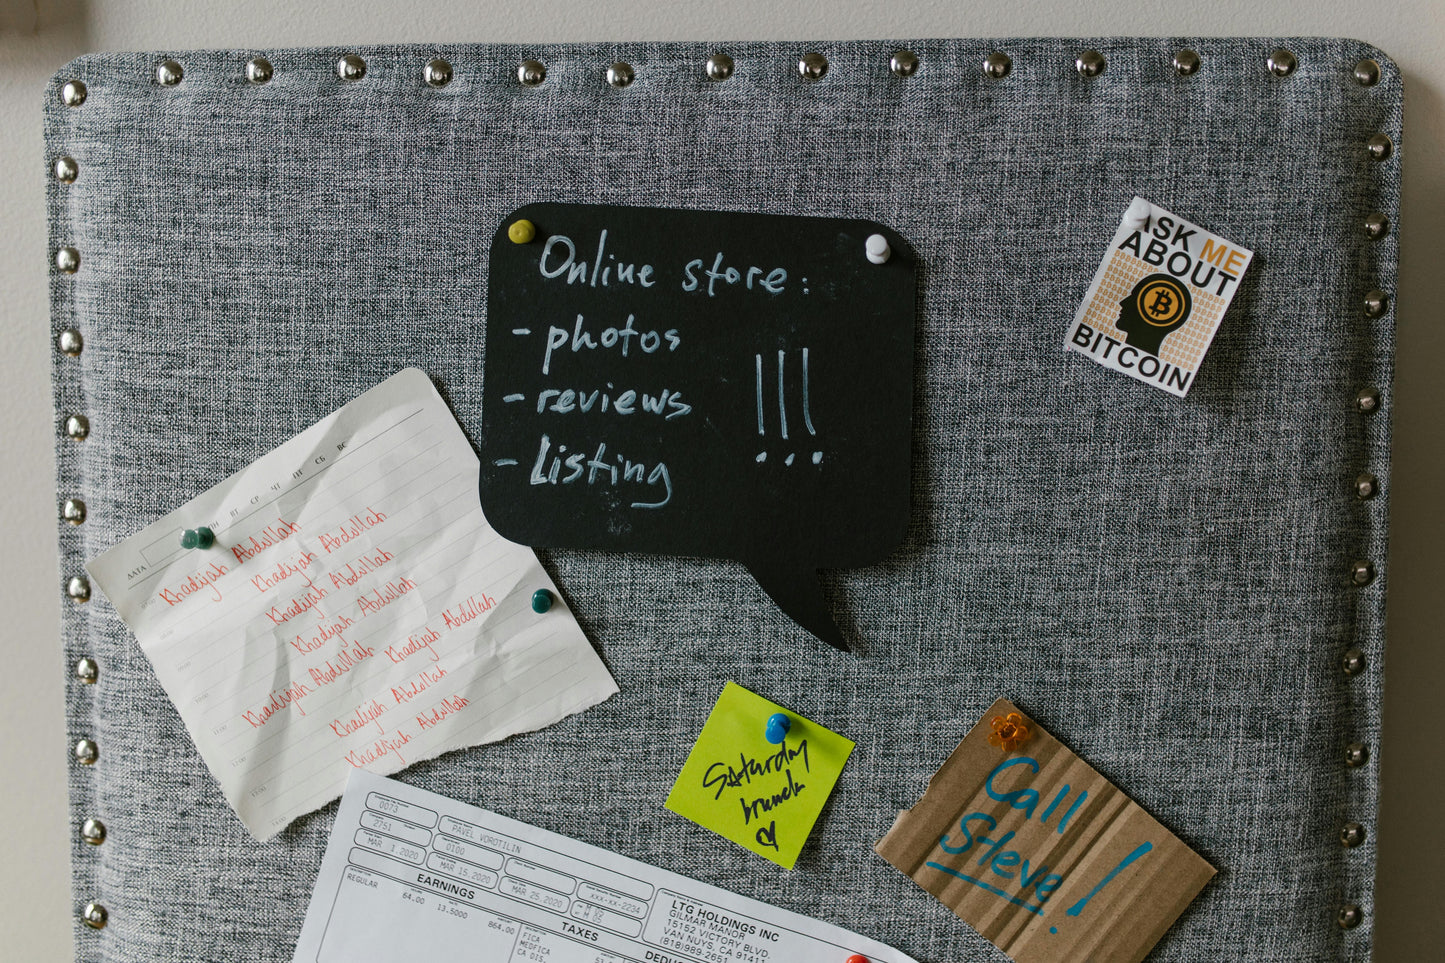 Online store:
- photos
- reviews
- Listing
!!!
ASK ME
ABOUT
BITCOIN
ДАТА
ПН ВТ СР ЧТ ПТ СБ ВС
Khadijah Abdullah
Khadijah Abdullah
Khadijah Abdullah
Khadijah Abdullah
Khadijah Abdullah
Khadijah Abdullah
Khadijah Abdullah
Khadijah Abdullah
Saturday
brunch
Call
Steve!
0073
PAVEL VOROTILIN
2751
0100
MAR. 1,2020
MAR 15,2020
MAR.25,2020
XXX-XX-2234
EARNINGS
REGULAR
64.00
13.5000
864.00
TAXES
FICA
MEDFICA
CA DIS.
LTG HOLDINGS INC
GILMAR MANOR
15152 VICTORY BLVD.
VAN NUYS, CA 91411
(818)989-2651